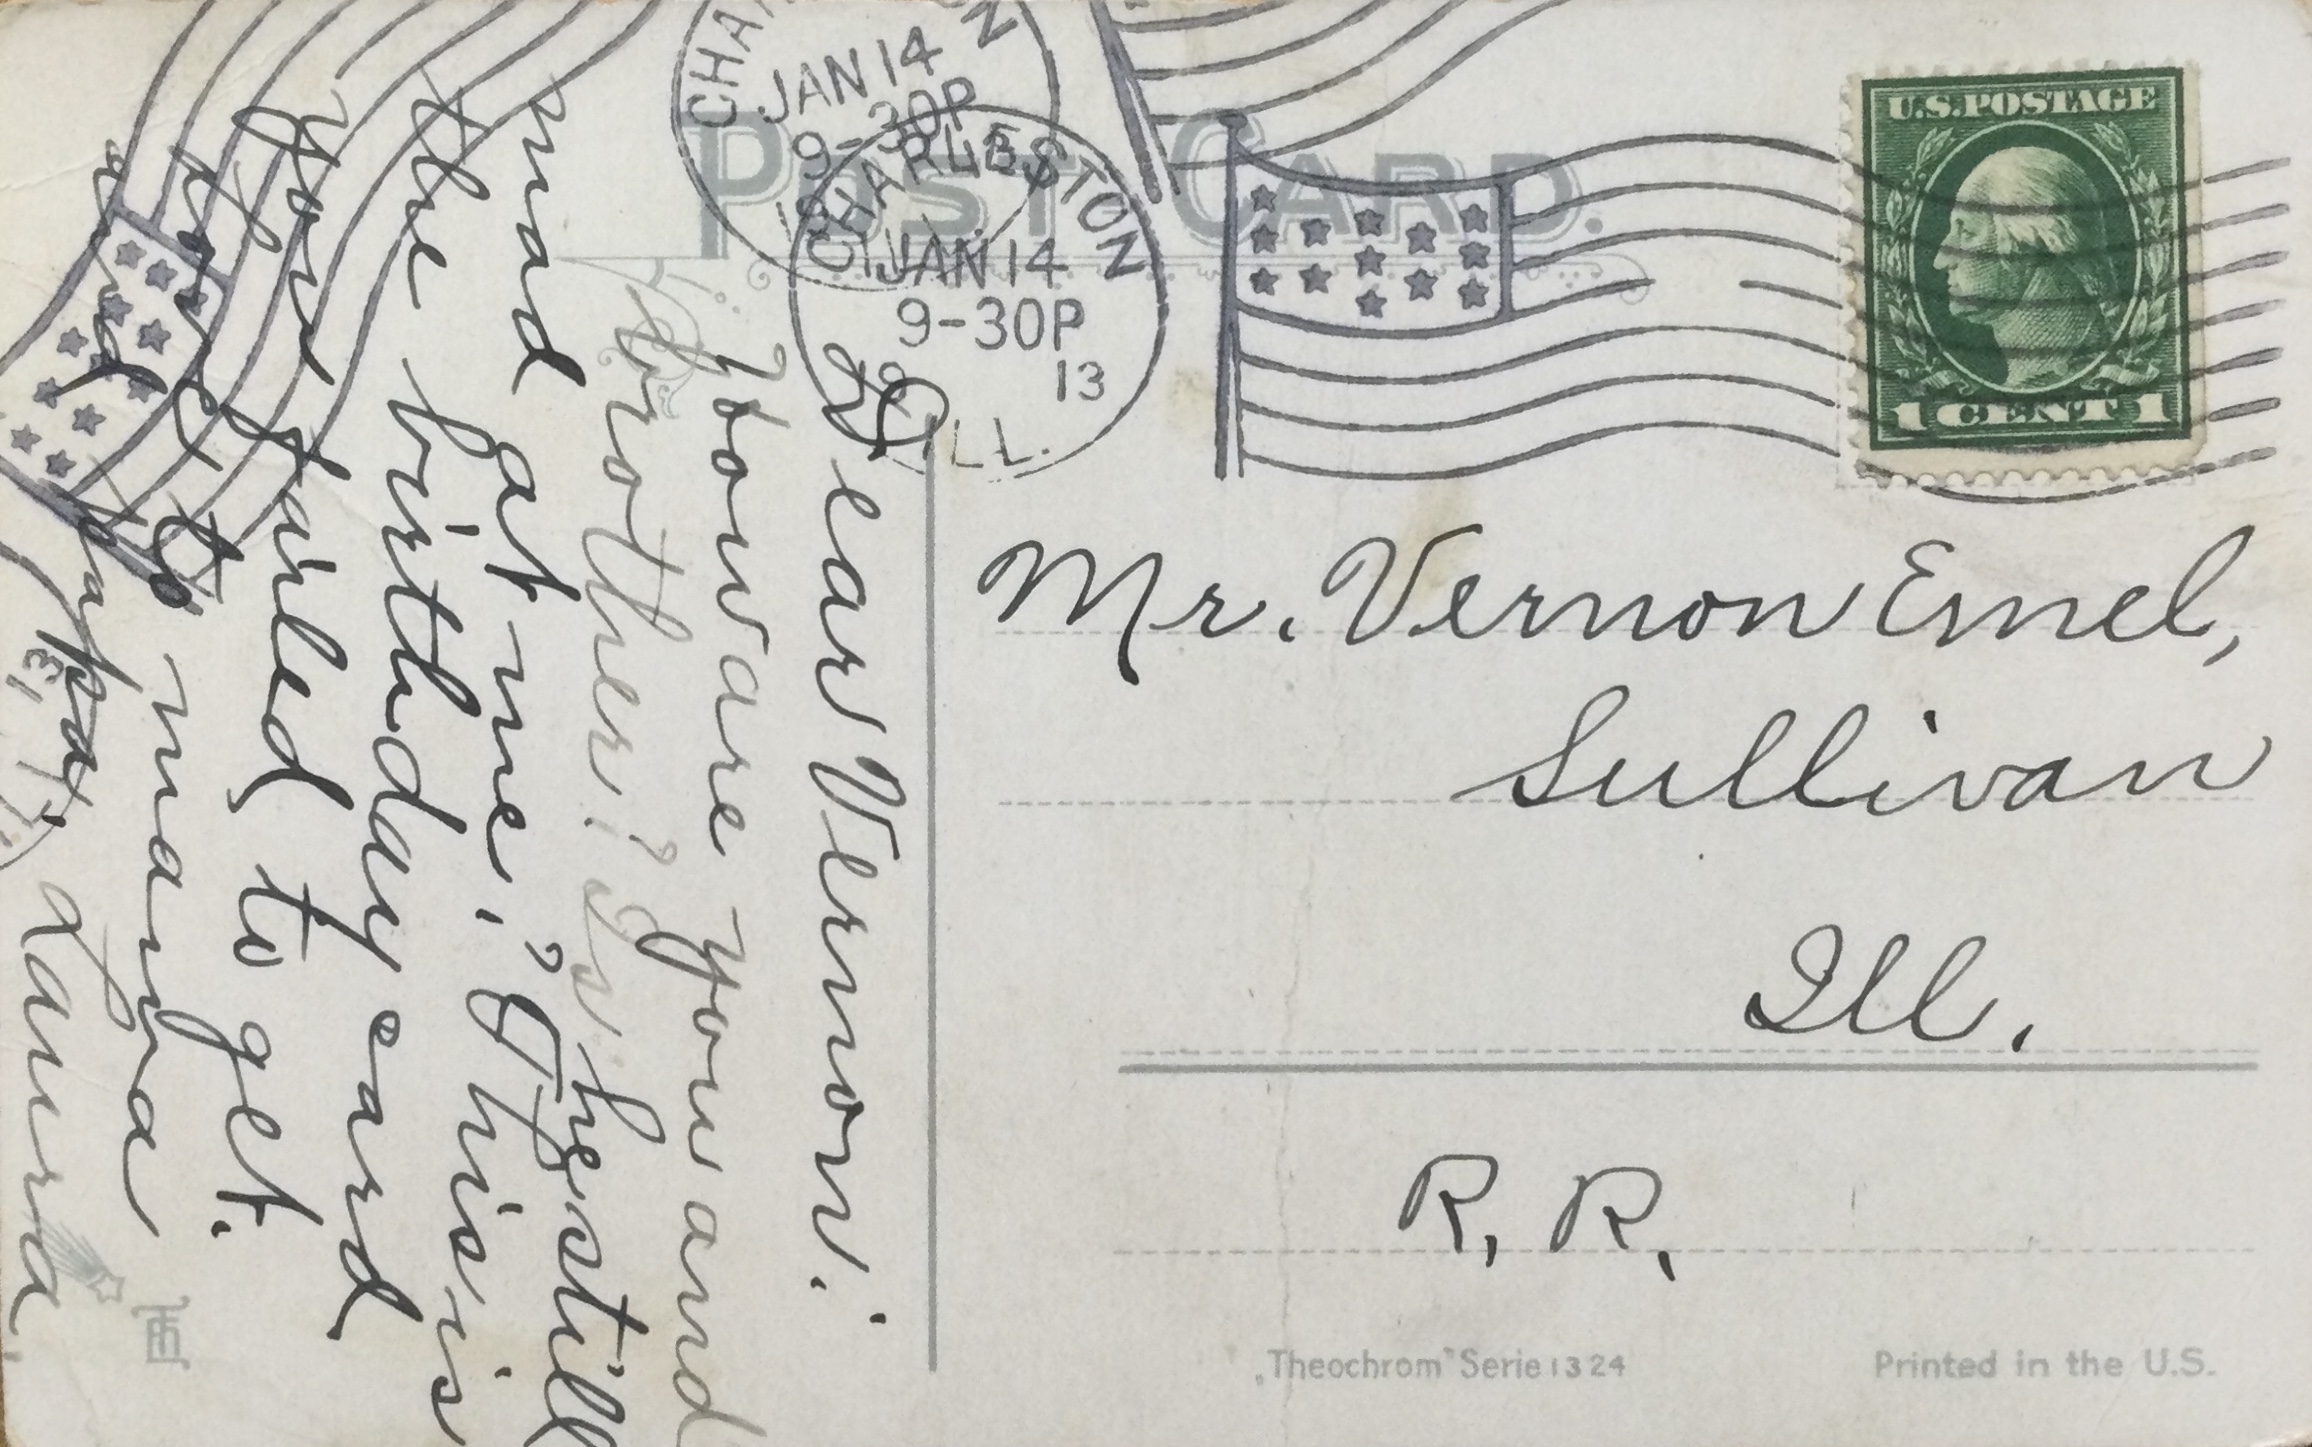 CHARLESTON
JAN 14
9-30P
13
CHARLESTON
JAN 14
9-30P
13
ILL.
POST CARD.
U.S. POSTAGE
1 CENT 1
Mr. Vernon Emel,
Sullivan
Ill.
R. R.
Dear Vernon:
How are you and
brother? Is he still
mad at me,? This is
the birthday card
you failed to get.
love to mama
and papa. Laura
„Theochrom" Serie 1324
Printed in the U.S.